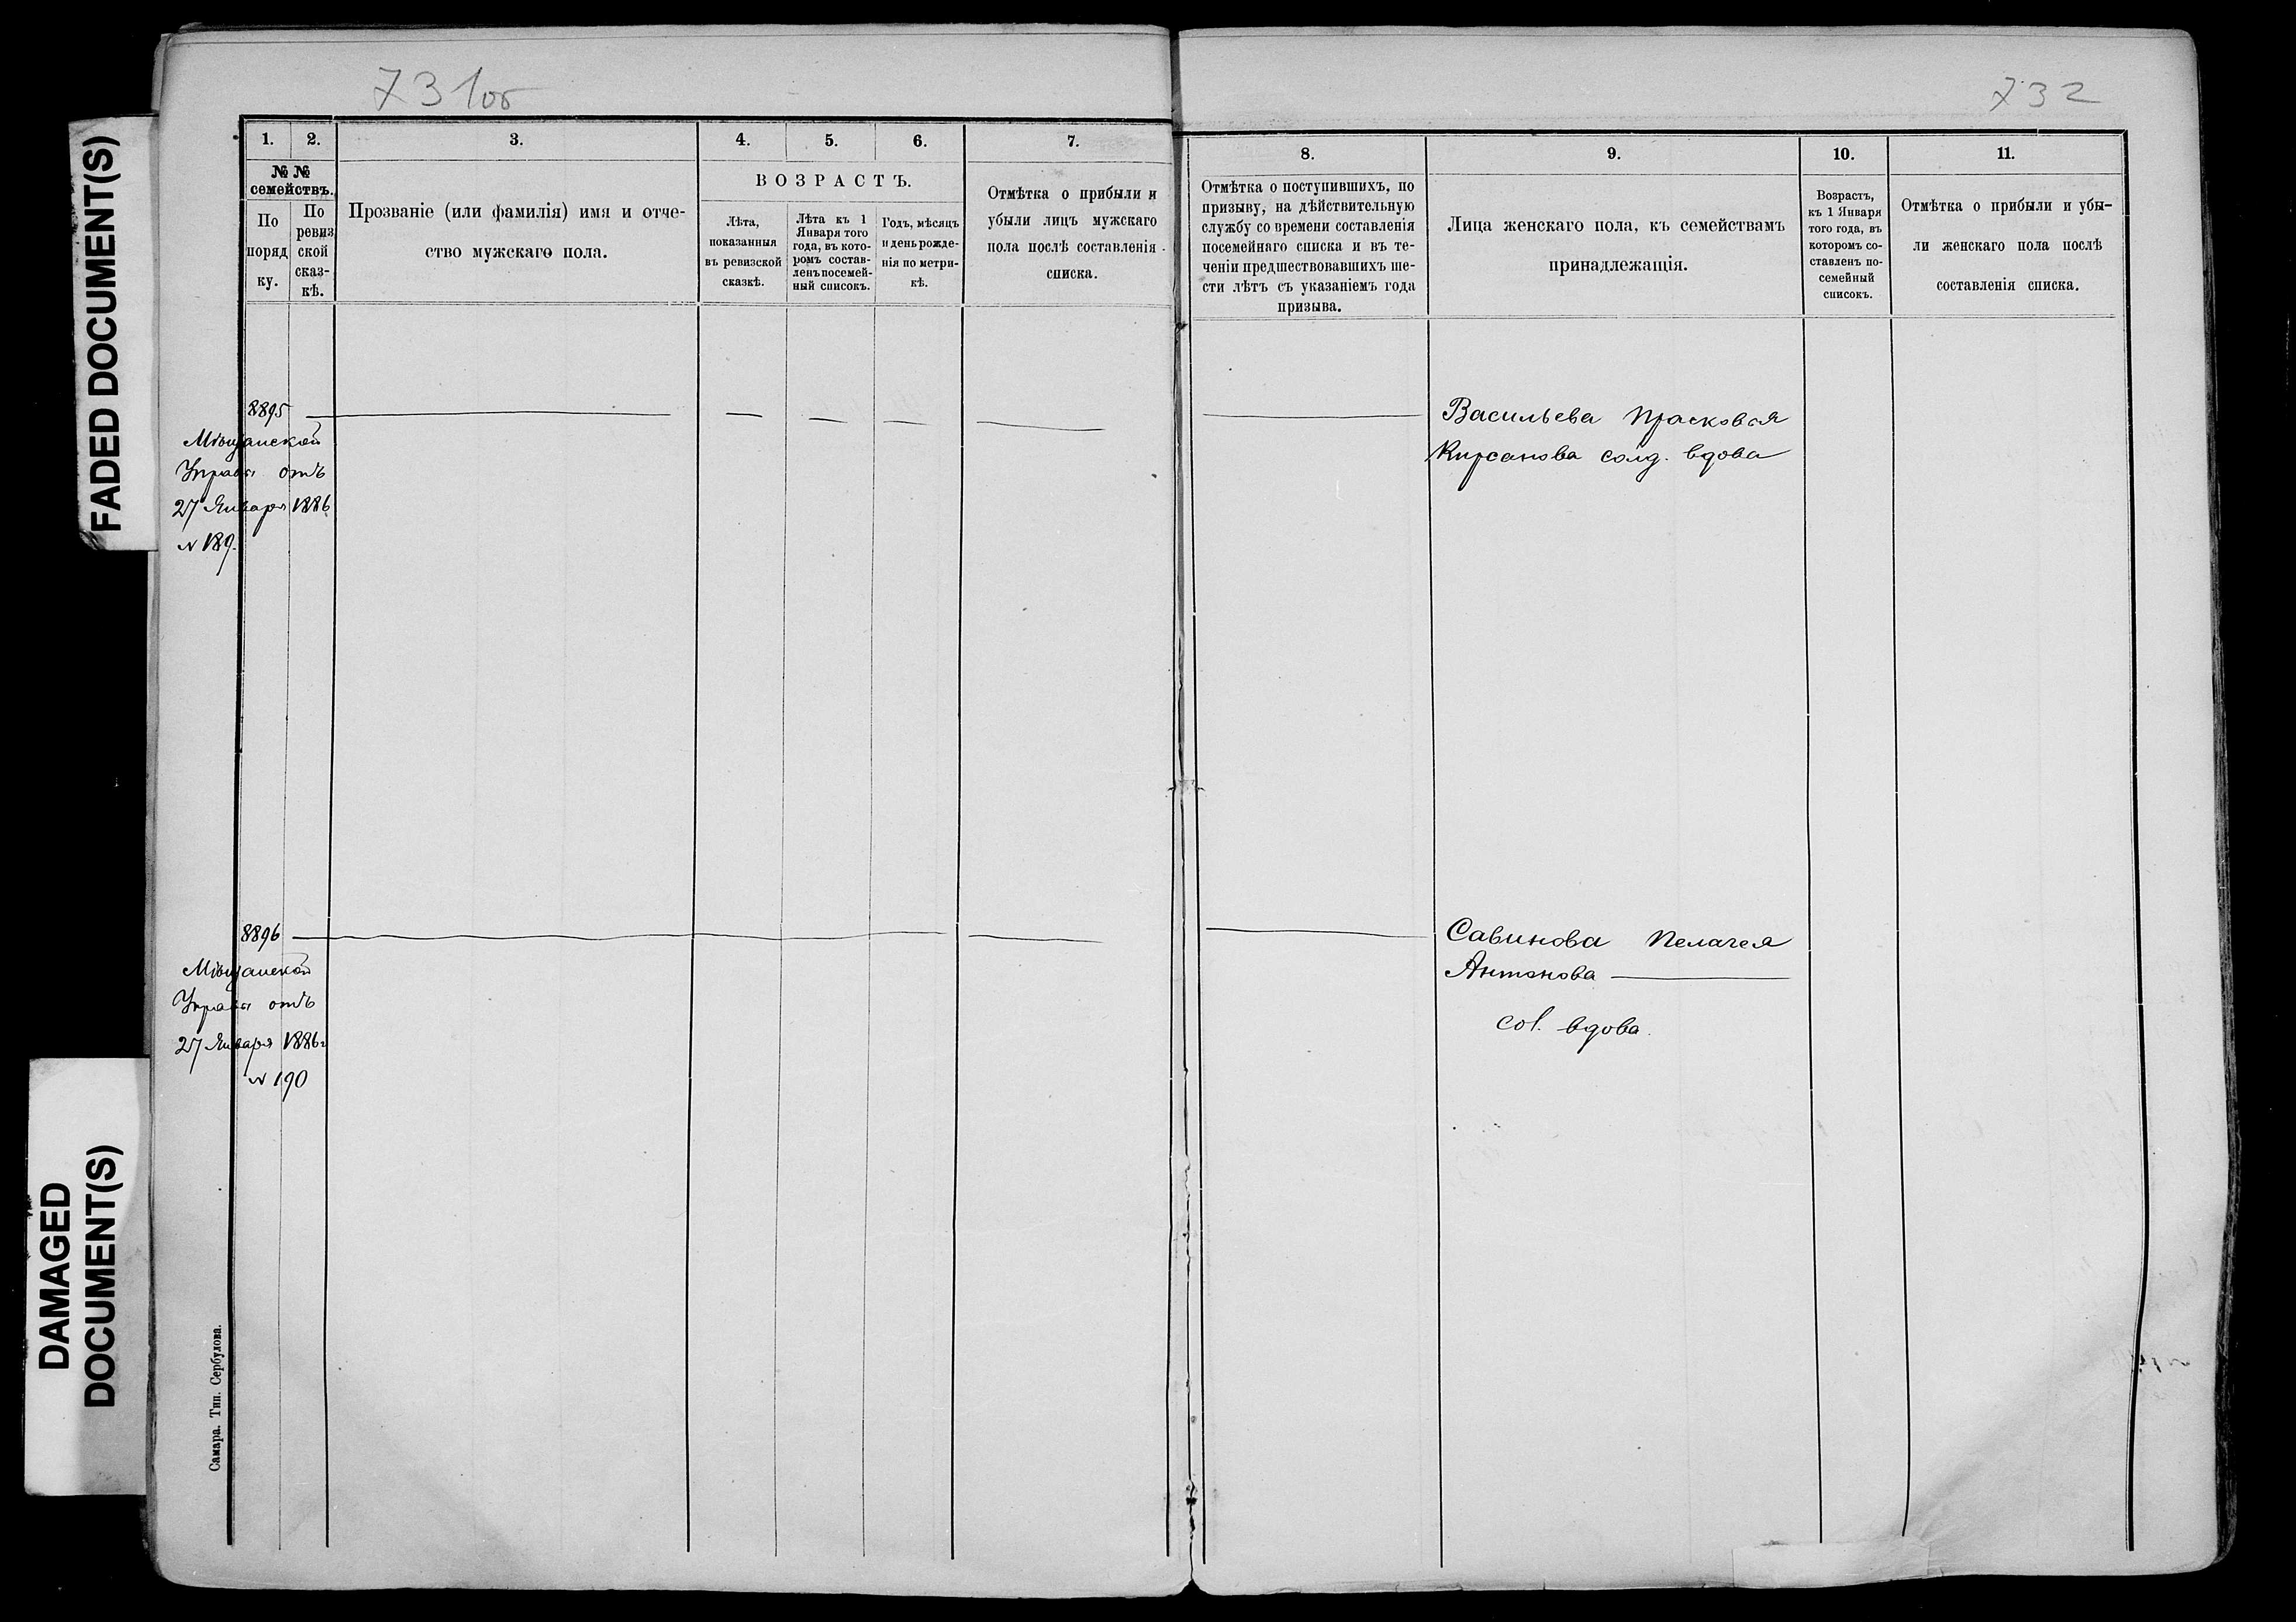 731об
732
FADED DOCUMENT(S)
DAMAGED
DOCUMENT(S)
1.
2.
3.
4.
5.
6.
7.
№ №
семействъ.
По
поряд
ку.
По
ревиз
ской
сказ-
кѣ.
Прозваніе (или фамилія) имя и отче-
ство мужскаго пола.
ВОЗРАСТЪ.
Лѣта,
показанныя
въ ревизской
сказкѣ.
Лѣта къ 1
Января того
года, въ кото-
ромъ состав-
ленъ посемей-
ный списокъ.
Годъ, мѣсяцъ
и день рожде-
нія по метри-
кѣ.
Отмѣтка о прибыли и
убыли лицъ мужскаго
пола послѣ составленія
списка.
8.
9.
10.
11.
Отмѣтка о поступившихъ, по
призыву, на дѣйствительную
службу со времени составленія
посемейнаго списка и въ те-
ченіи предшествовавшихъ ше-
сти лѣтъ съ указаніемъ года
призыва.
Лица женскаго пола, къ семействамъ
принадлежащія.
Возрастъ,
къ 1 Января
того года, въ
которомъ со-
ставленъ по-
семейный
списокъ.
Отмѣтка о прибыли и убы-
ли женскаго пола послѣ
составленія списка.
8895
Мѣщанской
Управы отъ
27 Января 1886
№ 189.
Васильева Прасковья
Кирсанова солд. вдова
8896
Мѣщанской
Управы отъ
27 Января 1886г
№ 190
Савинова Пелагея
Антонова
сол. вдова.
Самара. Тип. Сербулова.